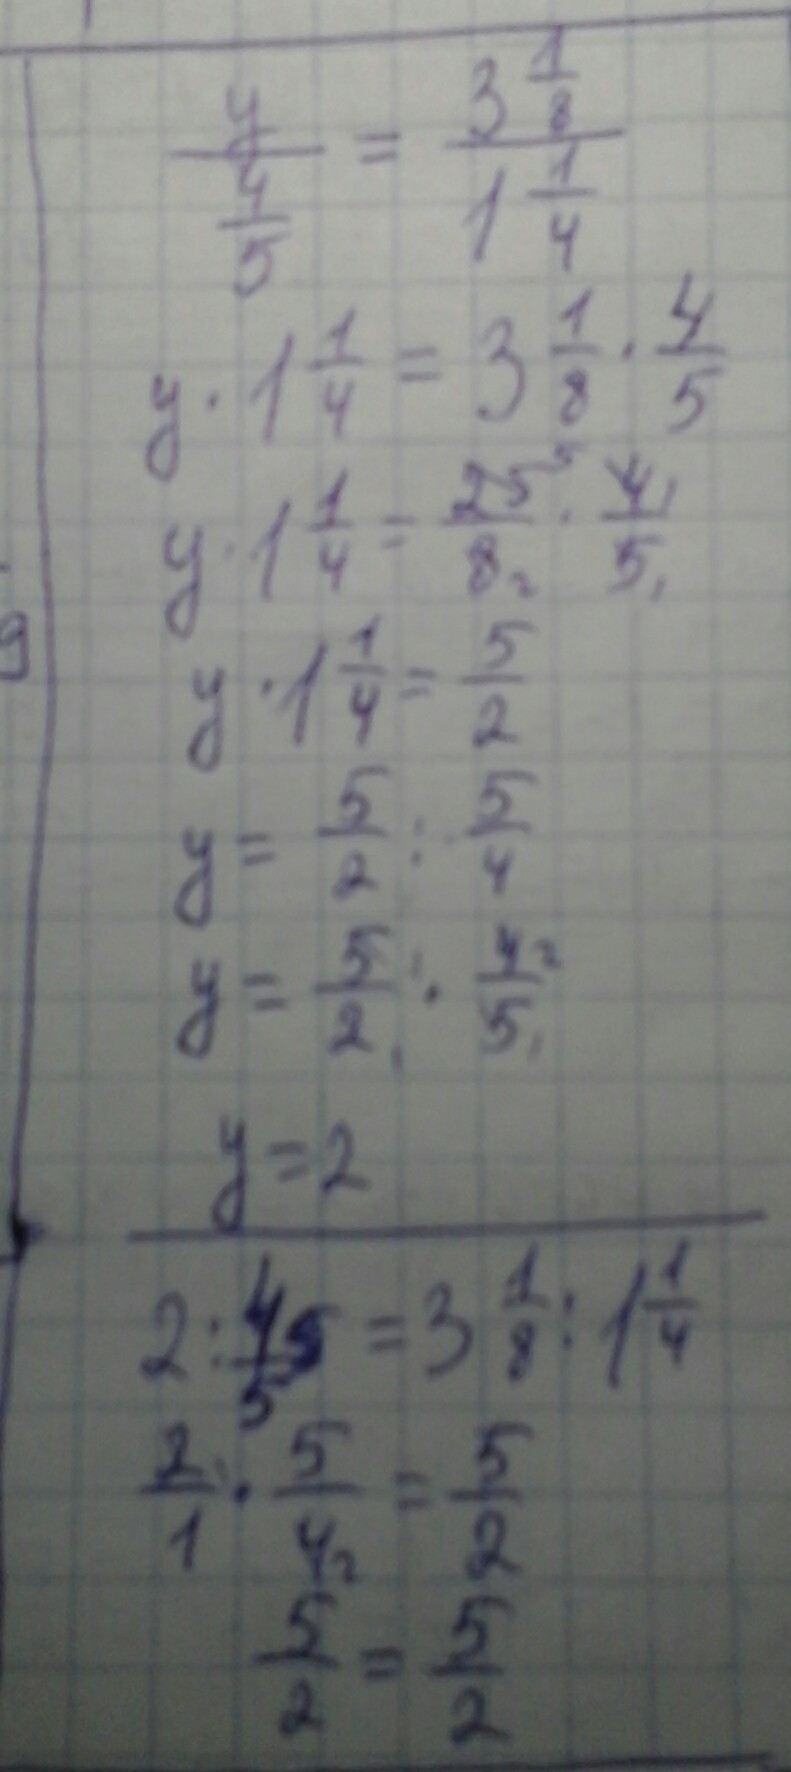 y/(4/5) = (3 1/8)/(1 1/4)
y · 1 1/4 = 3 1/8 · 4/5
y · 1 1/4 = 25⁵/8₂ · 4¹/5₁
y · 1 1/4 = 5/2
y = 5/2 : 5/4
y = 5¹/2₁ · 4²/5₁
y = 2
2 : 4/5 = 3 1/8 : 1 1/4
2¹/1 · 5/4₂ = 5/2
5/2 = 5/2